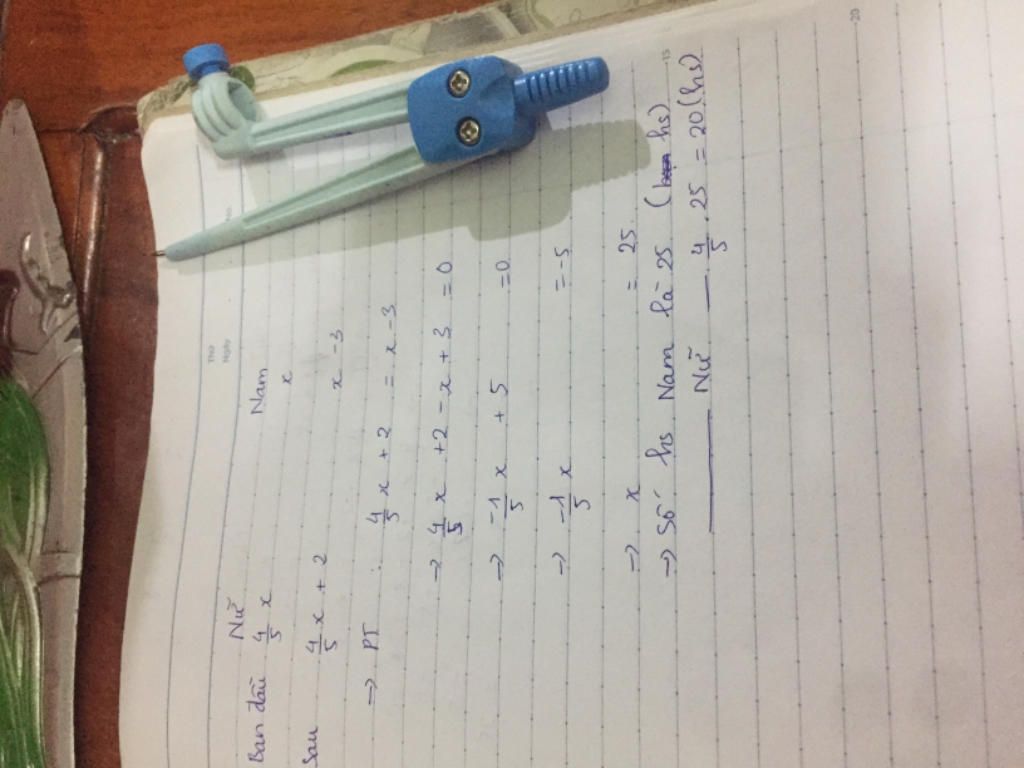 Thứ
Ngày
No.
Nữ Nam
Ban đầu 4/5 x x
Sau 4/5 x + 2 x - 3
→ PT : 4/5 x + 2 = x - 3
→ 4/5 x + 2 - x + 3 = 0
→ -1/5 x + 5 = 0
→ -1/5 x = -5
→ x = 25
→ Số hs Nam là 25 (hs)
Nữ — 4/5 . 25 = 20 (hs)
15
20